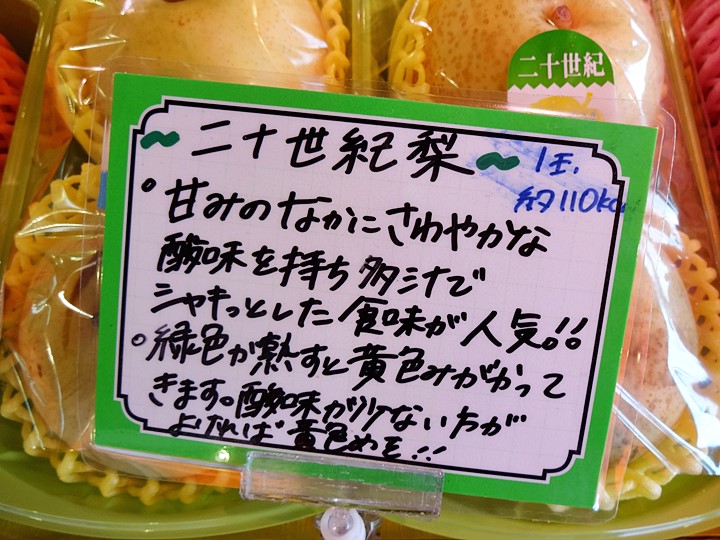 二十世紀
～二十世紀梨～
1玉.
約110kcal
甘みのなかにさわやかな
酸味を持ち多汁で
シャキっとした食味が人気!!
緑色が熟すと黄色みがかって
きます。酸味が少ない方が
よければ黄色めを!!